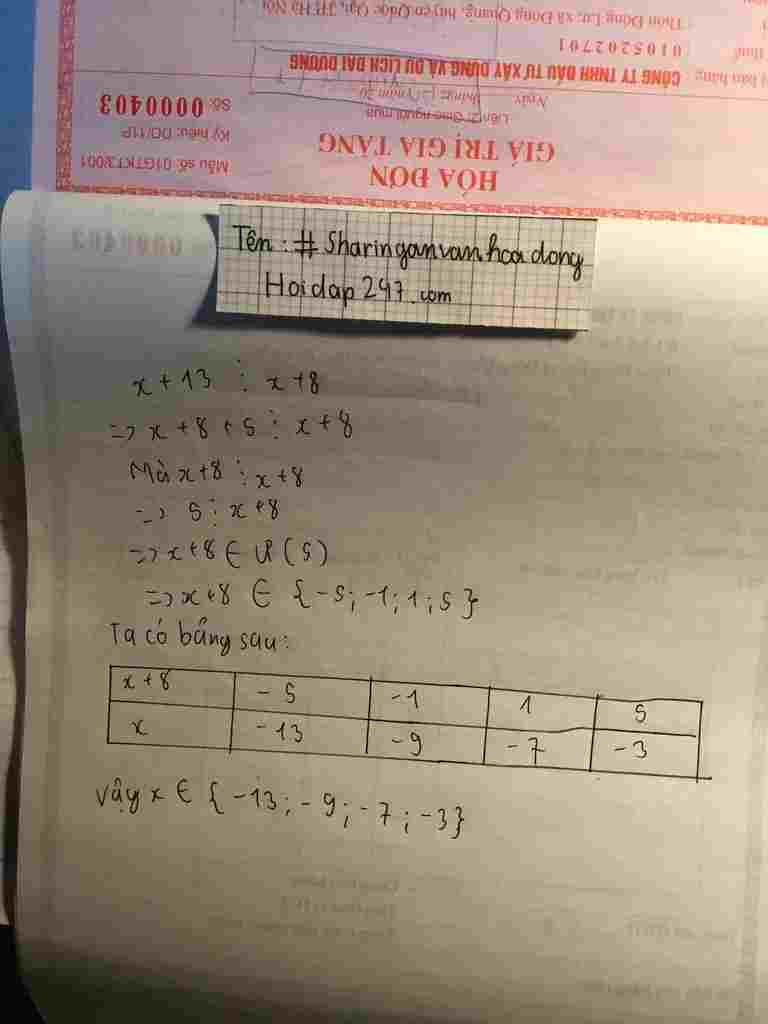 Thôn Đông Lư, xã Đông Quang, huyện Quốc Oai, TP. Hà Nội
0105202701
CÔNG TY TNHH ĐẦU TƯ XÂY DỰNG VÀ DU LỊCH ĐẠI DƯƠNG
Ngày tháng năm 20
Liên 2: Giao người mua
Số: 0000403
GIÁ TRỊ GIA TĂNG
Ký hiệu: DD/11P
HÓA ĐƠN
Mẫu số: 01GTKT3/001
Tên : # Sharinganvanhoadong
Hoidap247.com
x + 13 ⋮ x + 8
=> x + 8 + 5 ⋮ x + 8
Mà x + 8 ⋮ x + 8
=> 5 ⋮ x + 8
=> x + 8 ∈ Ư (5)
=> x + 8 ∈ {-5; -1; 1; 5}
Ta có bảng sau:
x + 8 -5 -1 1 5
x -13 -9 -7 -3
Vậy x ∈ {-13; -9; -7; -3}